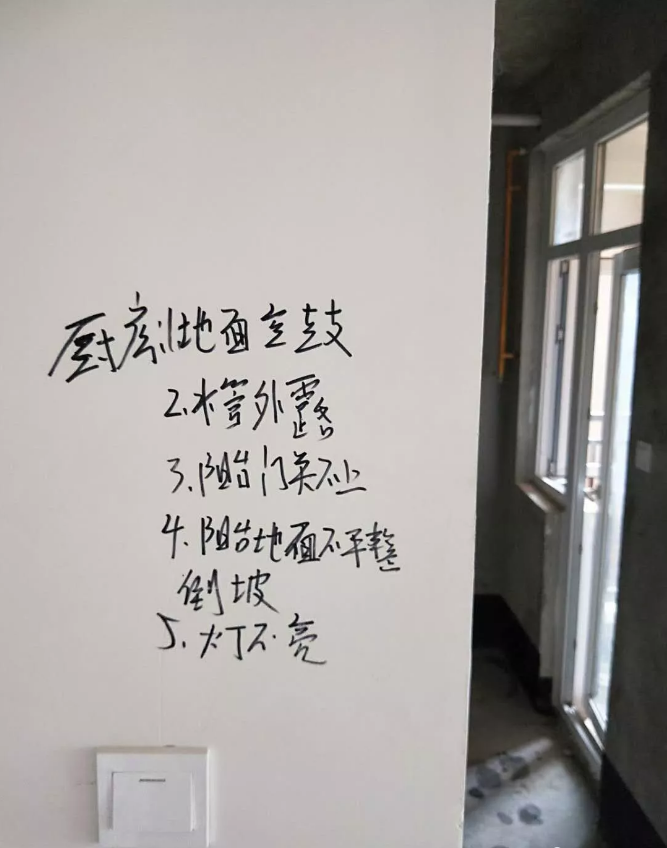 厨房1.地面空鼓
2.水管外露
3.阳台门关不上
4.阳台地面不平整
倒坡
5.灯不亮